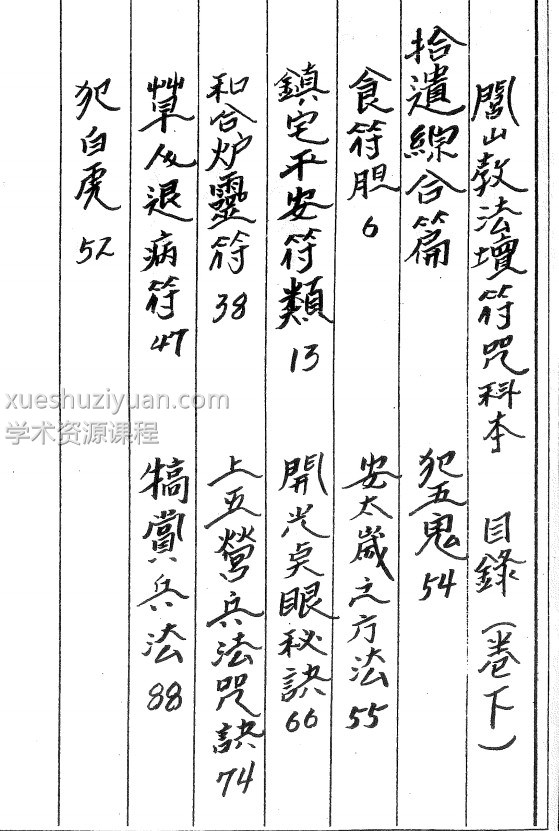 閭山教法壇符咒科本 目錄(卷下)
拾遺綜合篇
食符胆 6
鎮宅平安符類 13
和合炉靈符 38
草人退病符 47
犯白虎 52
犯五鬼 54
安太歲之方法 55
開光点眼秘訣 66
上五營兵法咒訣 74
犒賞兵法 88
xueshuziyuan.com
学术资源课程